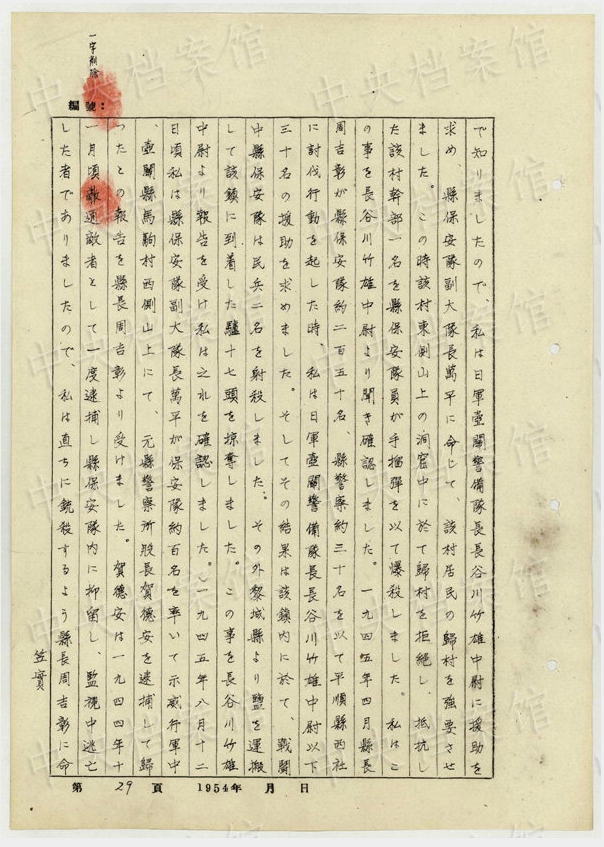 一字削除
編號：
で知りましたので、私は日軍壺關警備隊長長谷川竹雄中尉に援助を
求め、縣保安隊副大隊長萬平に命じて、該村居民の歸村を強要させ
ました。この時該村東側山上の洞窟中に於て歸村を拒絕し、抵抗し
た該村幹部一名を縣保安隊員が手榴彈を以て爆殺しました。私はこ
の事を長谷川竹雄中尉より聞き確認しました。一九四五年四月縣長
周吉彰が縣保安隊約二百五十名、縣警察約三十名を以て平順縣西社
に討伐行動を起した時、私は日軍壺關警備隊長長谷川竹雄中尉以下
三十名の援助を求めました。そしてその結果は該鎮内に於て、戰鬪
中縣保安隊は民兵二名を射殺しました。その外黎城縣より鹽を運搬
して該鎮に到着した驢十七頭を掠奪しました。この事を長谷川竹雄
中尉より報告を受け私は之れを確認しました。一九四五年八月十二
日頃私は縣保安隊副大隊長萬平が保安隊約百名を率いて示威行軍中
、壺關縣馬駒村西側山上にて、元縣警察所股長賀德安を逮捕して歸
つたとの報告を縣長周吉彰より受けました。賀德安は一九四四年十
一月頃通敵者として一度逮捕し縣保安隊内に抑留し、監視中逃亡
した者でありましたので、私は直ちに銃殺するよう縣長周吉彰に命
笠實
第 29 頁 1954年 月 日
中央档案馆